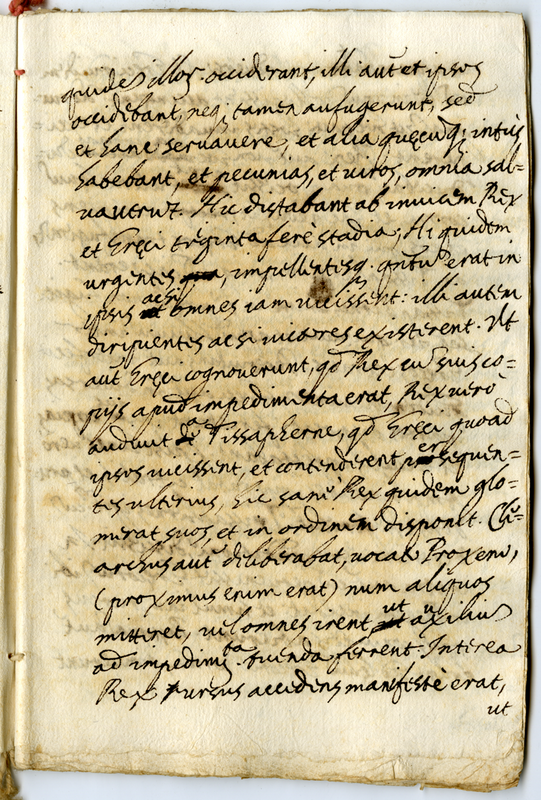 quidẽ illos occiderant, illi aut̃ et ipsos
occidebant, neq; tamen aufugerunt, sed
et hanc servavere, et alia quęcũq; intus
habebant, et pecunias, et viros, omnia sal=
vaverũt. Hic distabant ab invicem Rex
et Gręci triginta ferè stadia; Hi quidem
urgentes, impellentesq. qntũ erat in
ipsis ac si omnes iam vicissent: illi autem
diripientes ac si victores existerent. Ut
aut̃ Gręci cognoverunt, qd Rex cũ suis co=
pijs apud impedimenta erat, Rex verò
audivit à Tissapherne, qd Gręci quoad
ipsos vicissent, et contenderent persequen=
tes ulterius, hic sanè Rex quidem glo=
merat suos, et in ordinem disponit. Cle=
archus aut̃ deliberabat, vocat Proxenũ,
(proximus enim erat) num aliquos
mitteret, vel omnes irent, ut auxiliũ
ad impedimẽta tuenda ferrent. Interea
Rex rursus accedens manifestè erat,
ut